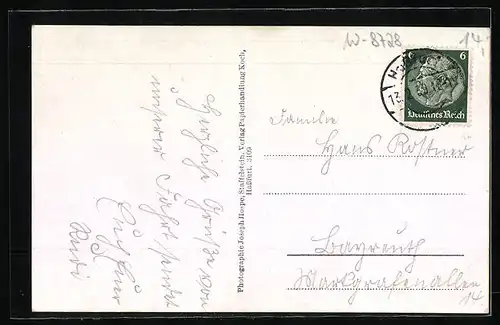 W-8728
14,-
6
Deutsches Reich
Herzliche Grüße von
unserer Fahrt sendet
Photographie Joseph Hoepe, Staffelstein, Verlag Papierhandlung Koch,
Haßfurt. 3109
Familie
Hans Rostner
Bayreuth
Markgrafenallee
14